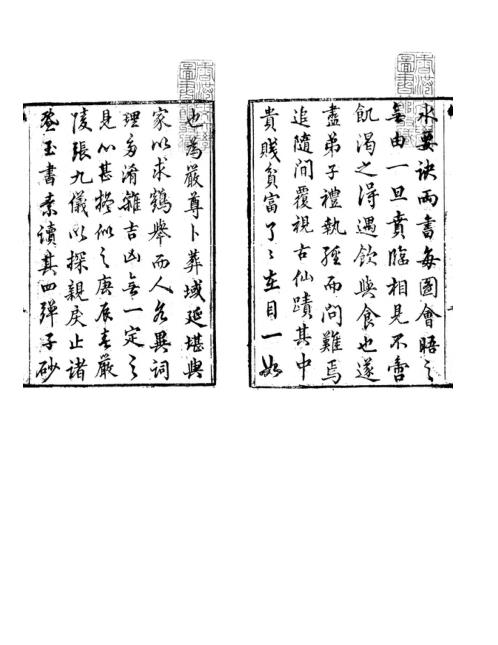 也為嚴尊卜葬域延堪輿
家以求鶴舉而人各異詞
理多淆雜吉凶無一定之
見心甚似之庚辰春嚴
陵張九儀以探親戾止諸
玉書素讀其四彈子砂
水要訣两書每圖會晤之
無由一旦賁臨相見不啻
飢渴之得遇飲與食也遂
盡弟子禮執經而問難焉
追隨間覆視古仙蹟其中
貴賤貧富了〻在目一如